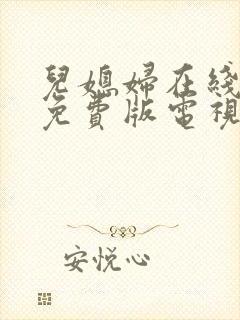 兒媳婦在綫
免費版電視
安悦心